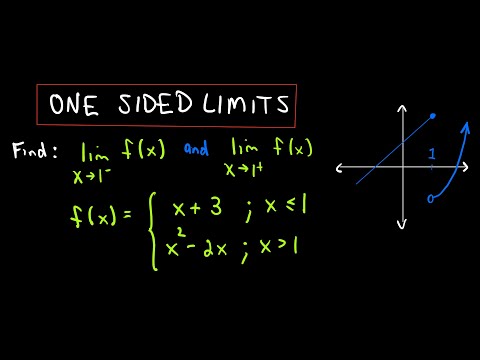 ONE SIDED LIMITS
Find: lim x→1⁻ f(x) and lim x→1⁺ f(x)
f(x) = { x + 3 ; x ≤ 1
x² - 2x ; x > 1
1